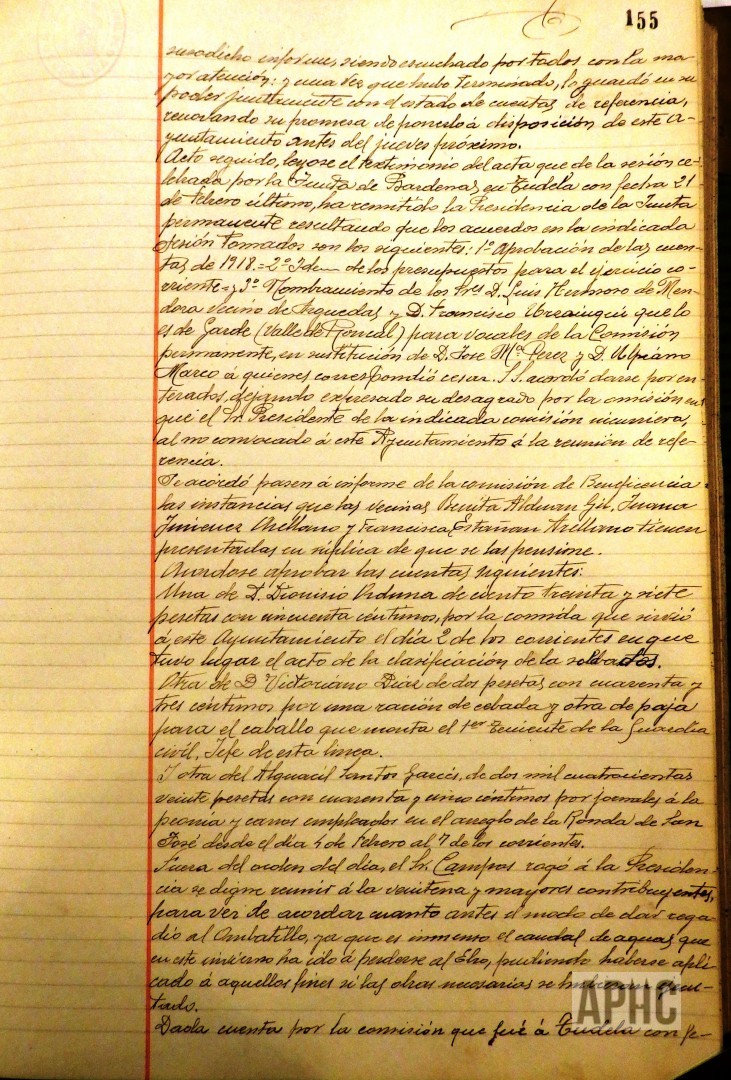 155
susodicho informe, siendo escuchado por todos con la ma-
yor atención: y una vez que hubo terminado, lo guardó en su
poder juntamente con el estado de cuentas de referencia,
renovando su promesa de ponerlo á disposición de este A-
yuntamiento antes del jueves próximo.
Acto seguido, leyose el testimonio del acta que de la sesión ce-
lebrada por la Junta de Bardenas en Tudela con fecha 21
de febrero último, ha remitido la Presidencia de la Junta
permanente resultando que los acuerdos en la indicada
sesión tomados son los siguientes: 1º Aprobación de las cuen-
tas de 1918.=2º Idem de los presupuestos para el ejercicio co-
rriente=y 3º Nombramiento de los Sres D. Luis Hermoso de Men-
doza vecino de Arguedas y D. Francisco Urzainqui que lo
es de Garde (Valle de Roncal) para vocales de la Comisión
permanente, en sustitución de D. José Mª Perez y D. Ulpiano
Marco á quienes correspondió cesar. S.S. acordó darse por en-
terados, dejando expresado su desagrado por la omisión en
que el Sr. Presidente de la indicada comisión incurriera,
al no convocado á este Ayuntamiento á la reunión de refe-
rencia.
Se acordó pasen á informe de la comisión de Beneficencia
las instancias que las vecinas Benita Alduan Gil, Juana
Jimenez Arellano y Francisca Estañan Arellano tienen
presentadas en súplica de que se las pensione.
Acordose aprobar las cuentas siguientes:
Una de D. Dionisio Orduna de ciento treinta y siete
pesetas con cincuenta céntimos, por la comida que sirvió
á este Ayuntamiento el día 2 de los corrientes en que
tuvo lugar el acto de la clasificación de la soldados.
Otra de D Victoriano Diaz de dos pesetas con cuarenta y
tres céntimos por una ración de cebada y otra de paja
para el caballo que monta el 1er Teniente de la Guardia
civil, Jefe de esta línea.
Y otra del Alguacil Santos Garcés, de dos mil cuatrocientas
veinte pesetas con cuarenta y cinco céntimos por jornales á la
peonía y carros empleados en el arreglo de la Ronda de San
José desde el día 4 de Febrero al 7 de los corrientes.
Fuera del orden del día, el Sr. Campos rogó á la Presiden-
cia se digne reunir á la veintena y mayores contribuyentes,
para ver de acordar cuanto antes el modo de dar rega-
dío al Ombatillo, ya que es inmenso el caudal de aguas que
en este invierno ha ido á perderse al Ebro, pudiendo haberse apli-
cado á aquellos fines si las obras necesarias se hubieran ejecu-
tado.
Dada cuenta por la comisión que fué á Tudela con fe-
APHC